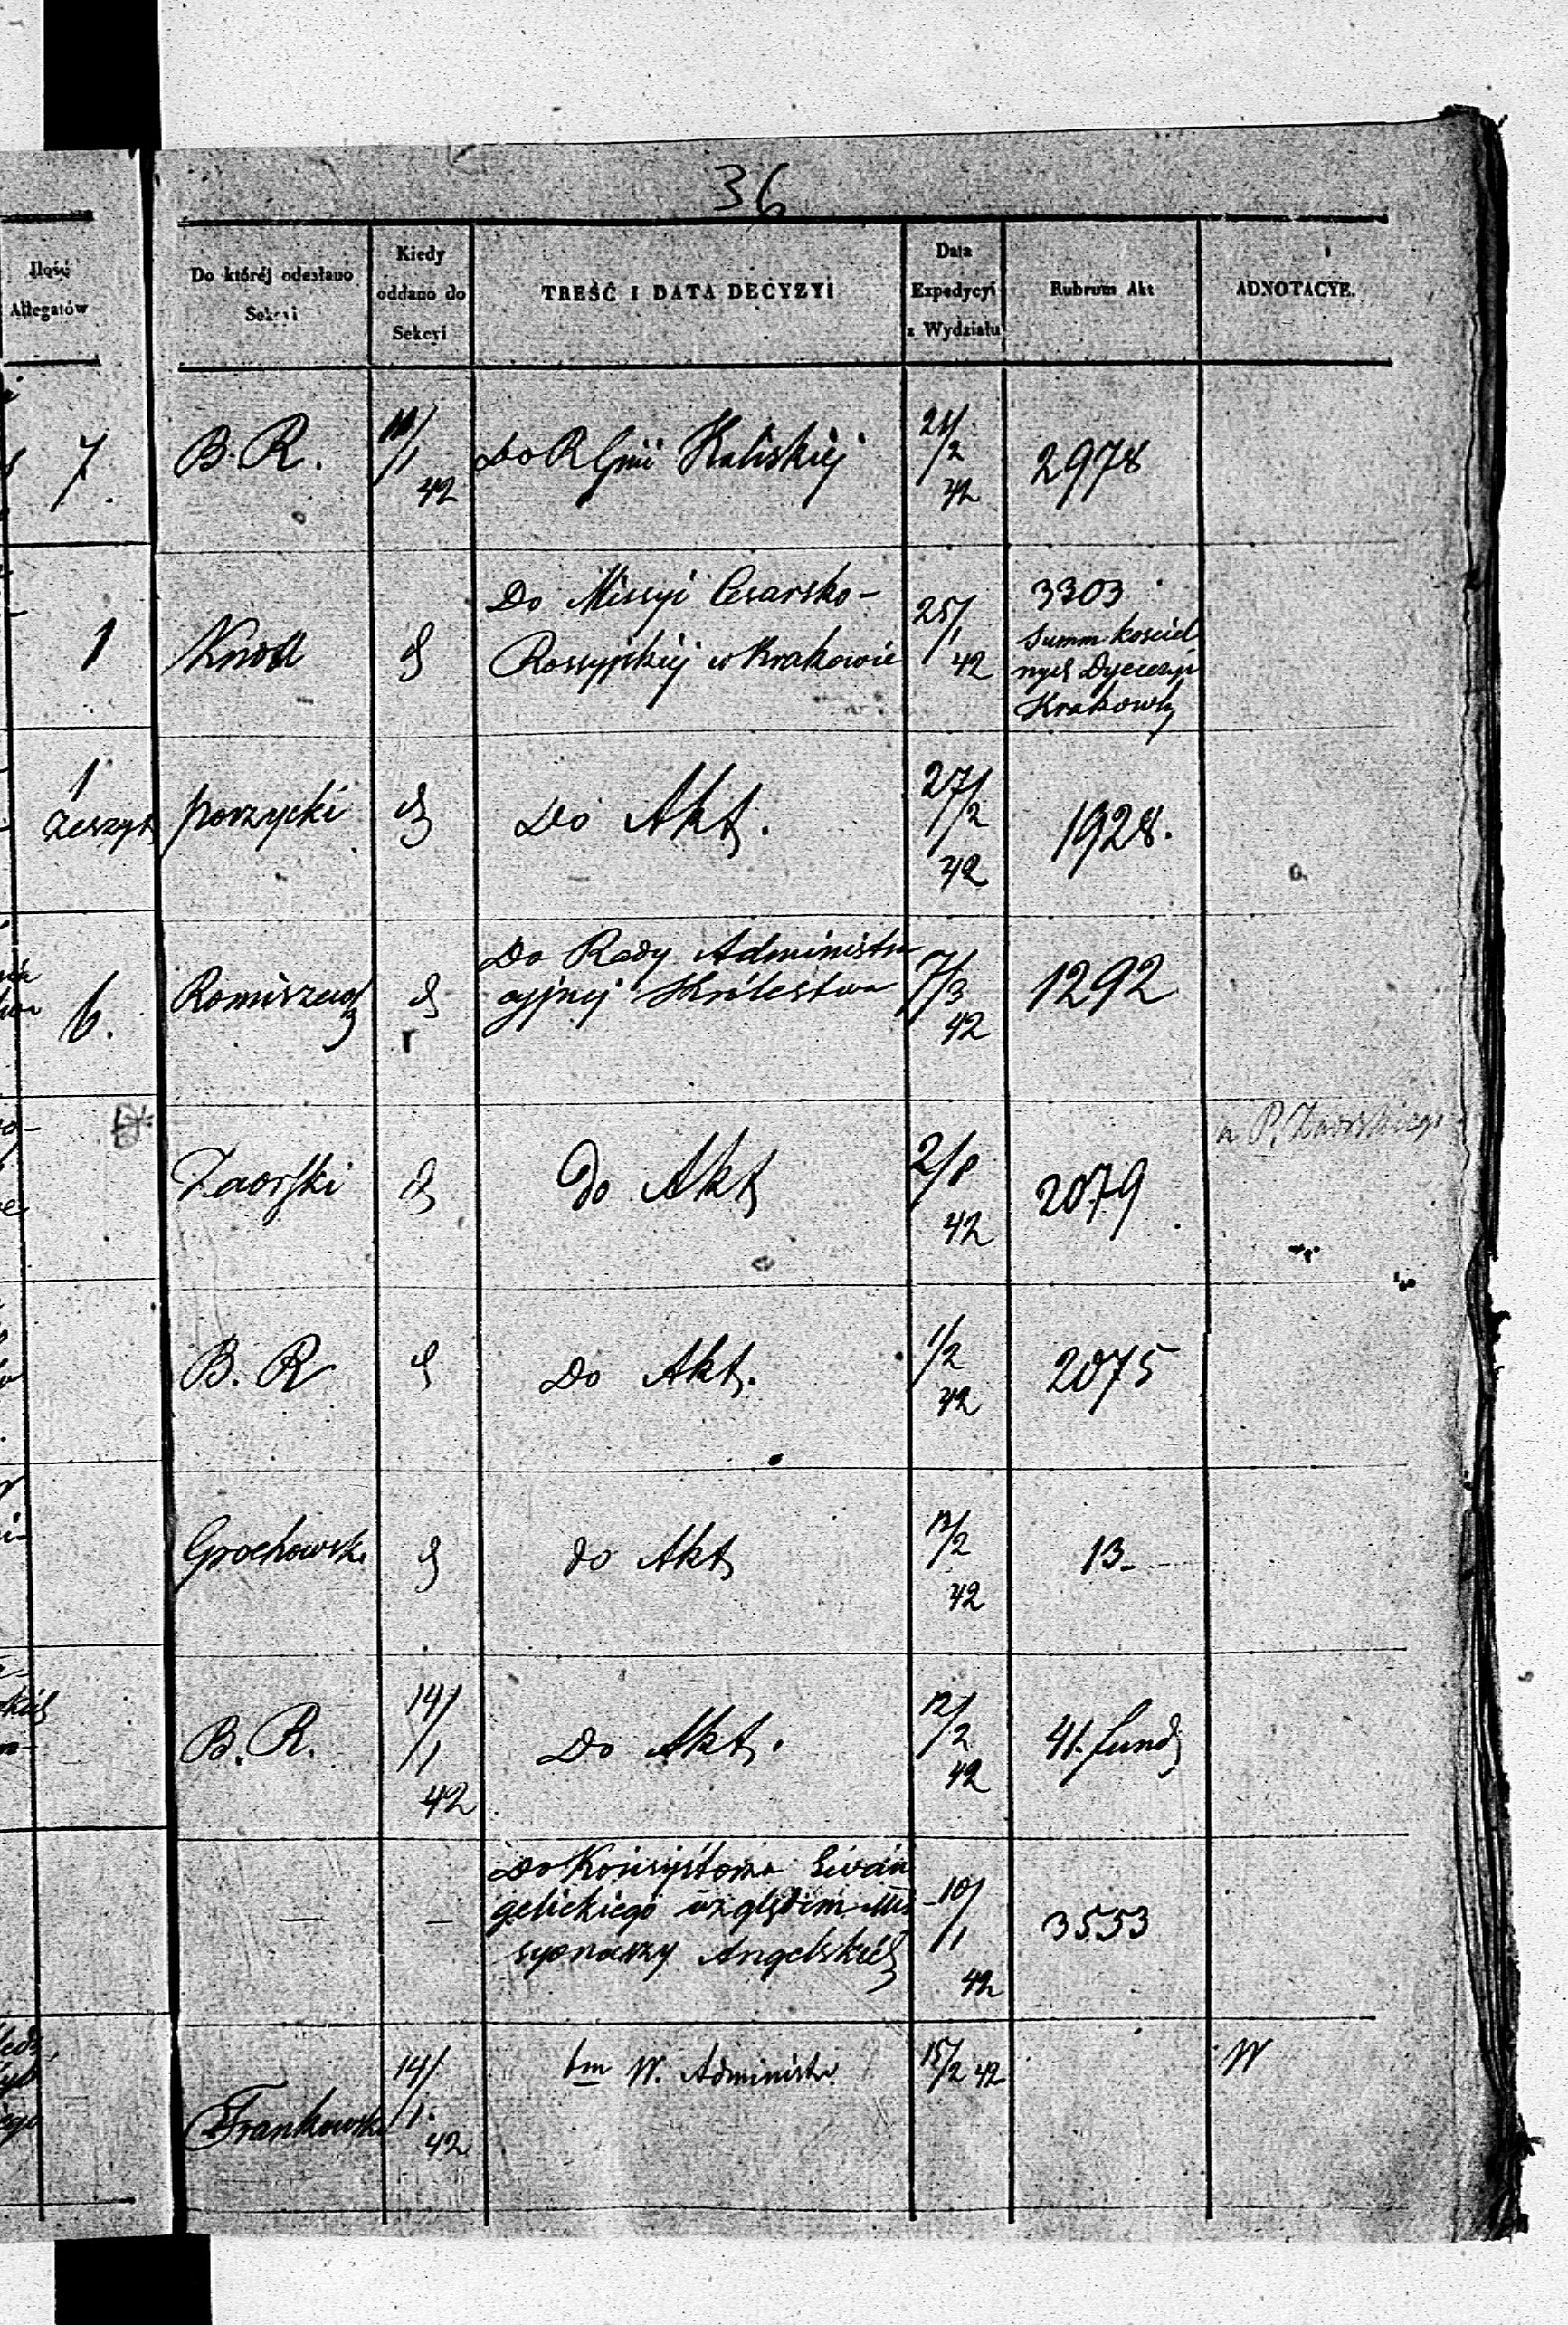 36
Ilość
Allegatów
Do któréj odesłano
Sekcyi
Kiedy
oddano do
Sekcyi
TREŚĆ I DATA DECYZYI
Data
Expedycyi
z Wydziału
Rubrum Akt
ADNOTACYE.
7.
B. R.
/1
42
Do R Gmi Kaliskiej
21/
/2
42
2978
1
Knoll
Do Missyi Cesarsko-
Rossyjskiej w Krakowie
25/
/1
42
3303
Summ kościel
nych Dyecezyi
Krakowsk
1
Zeszyt
Porzycki
Do Akt.
27/
/2
42
1928.
6.
Do Rady Administra
cyjnej Królestwa
7/3
42
1292
Zaorski
do Akt
2/8
42
2079
P. Zaorskiego
B. R
Do Akt.
1/2
42
2075
Grochowski
do Akt
/2
42
13
B. R.
14/
/1
42
Do Akt.
12/
/2
42
41. fund
—
—
Do Konsystorza Ewan
gelickiego względem Mis
syonarzy Angelskich
10/
/1
42
3553
Frankowski
14/
/1.
42
W. Administr.
15/2 42
W